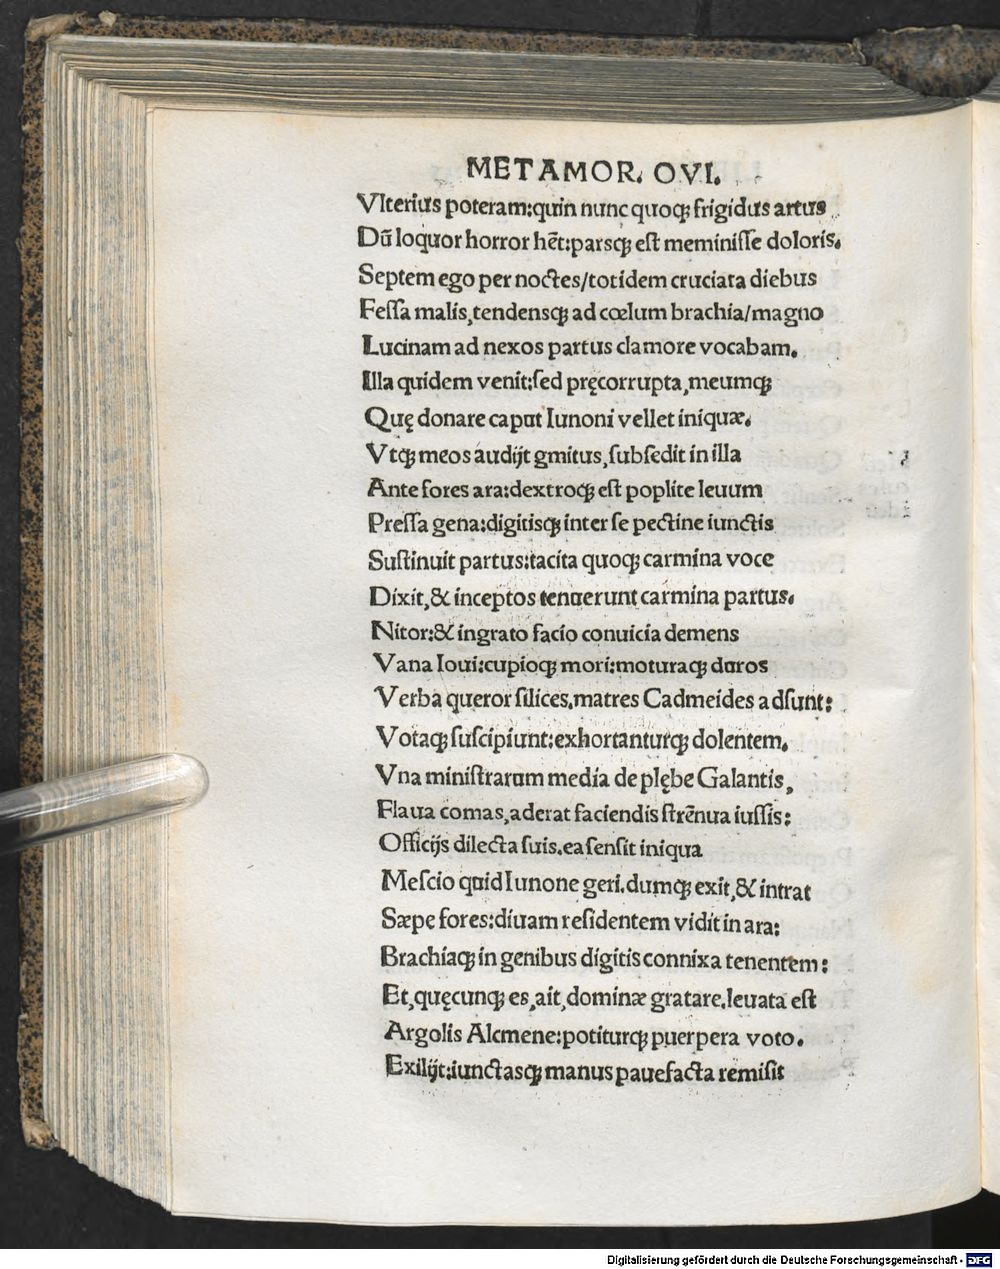 METAMOR. OVI.
Vlterius poteram:quin nunc quoqꝫ frigidus artus
Dū loquor horror hēt:parsqꝫ est meminisse doloris.
Septem ego per noctes/totidem cruciata diebus
Fessa malis,tendensqꝫ ad cœlum brachia/magno
Lucinam ad nexos partus clamore vocabam.
Illa quidem venit:sed pręcorrupta,meumqꝫ
Quę donare caput Iunoni vellet iniquæ.
Vtqꝫ meos audijt gmitus,subsedit in illa
Ante fores ara:dextroqꝫ est poplite leuum
Pressa gena:digitisqꝫ inter se pectine iunctis
Sustinuit partus:tacita quoqꝫ carmina voce
Dixit,& inceptos tenuerunt carmina partus.
Nitor:& ingrato facio conuicia demens
Vana Ioui:cupioqꝫ mori:moturaqꝫ duros
Verba queror silices.matres Cadmeides adsunt:
Votaqꝫ suscipiunt:exhortanturqꝫ dolentem.
Vna ministrarum media de plębe Galantis,
Flaua comas,aderat faciendis strēnua iussis:
Officijs dilecta suis.ea sensit iniqua
Mescio quid Iunone geri.dumqꝫ exit,& intrat
Sæpe fores:diuam residentem vidit in ara:
Brachiaqꝫ in genibus digitis connixa tenentem:
Et,quęcunqꝫ es,ait,dominæ gratare.leuata est
Argolis Alcmene:potiturqꝫ puerpera voto.
Exilijt:iunctasqꝫ manus pauefacta remisit
Digitalisierung gefördert durch die Deutsche Forschungsgemeinschaft - DFG